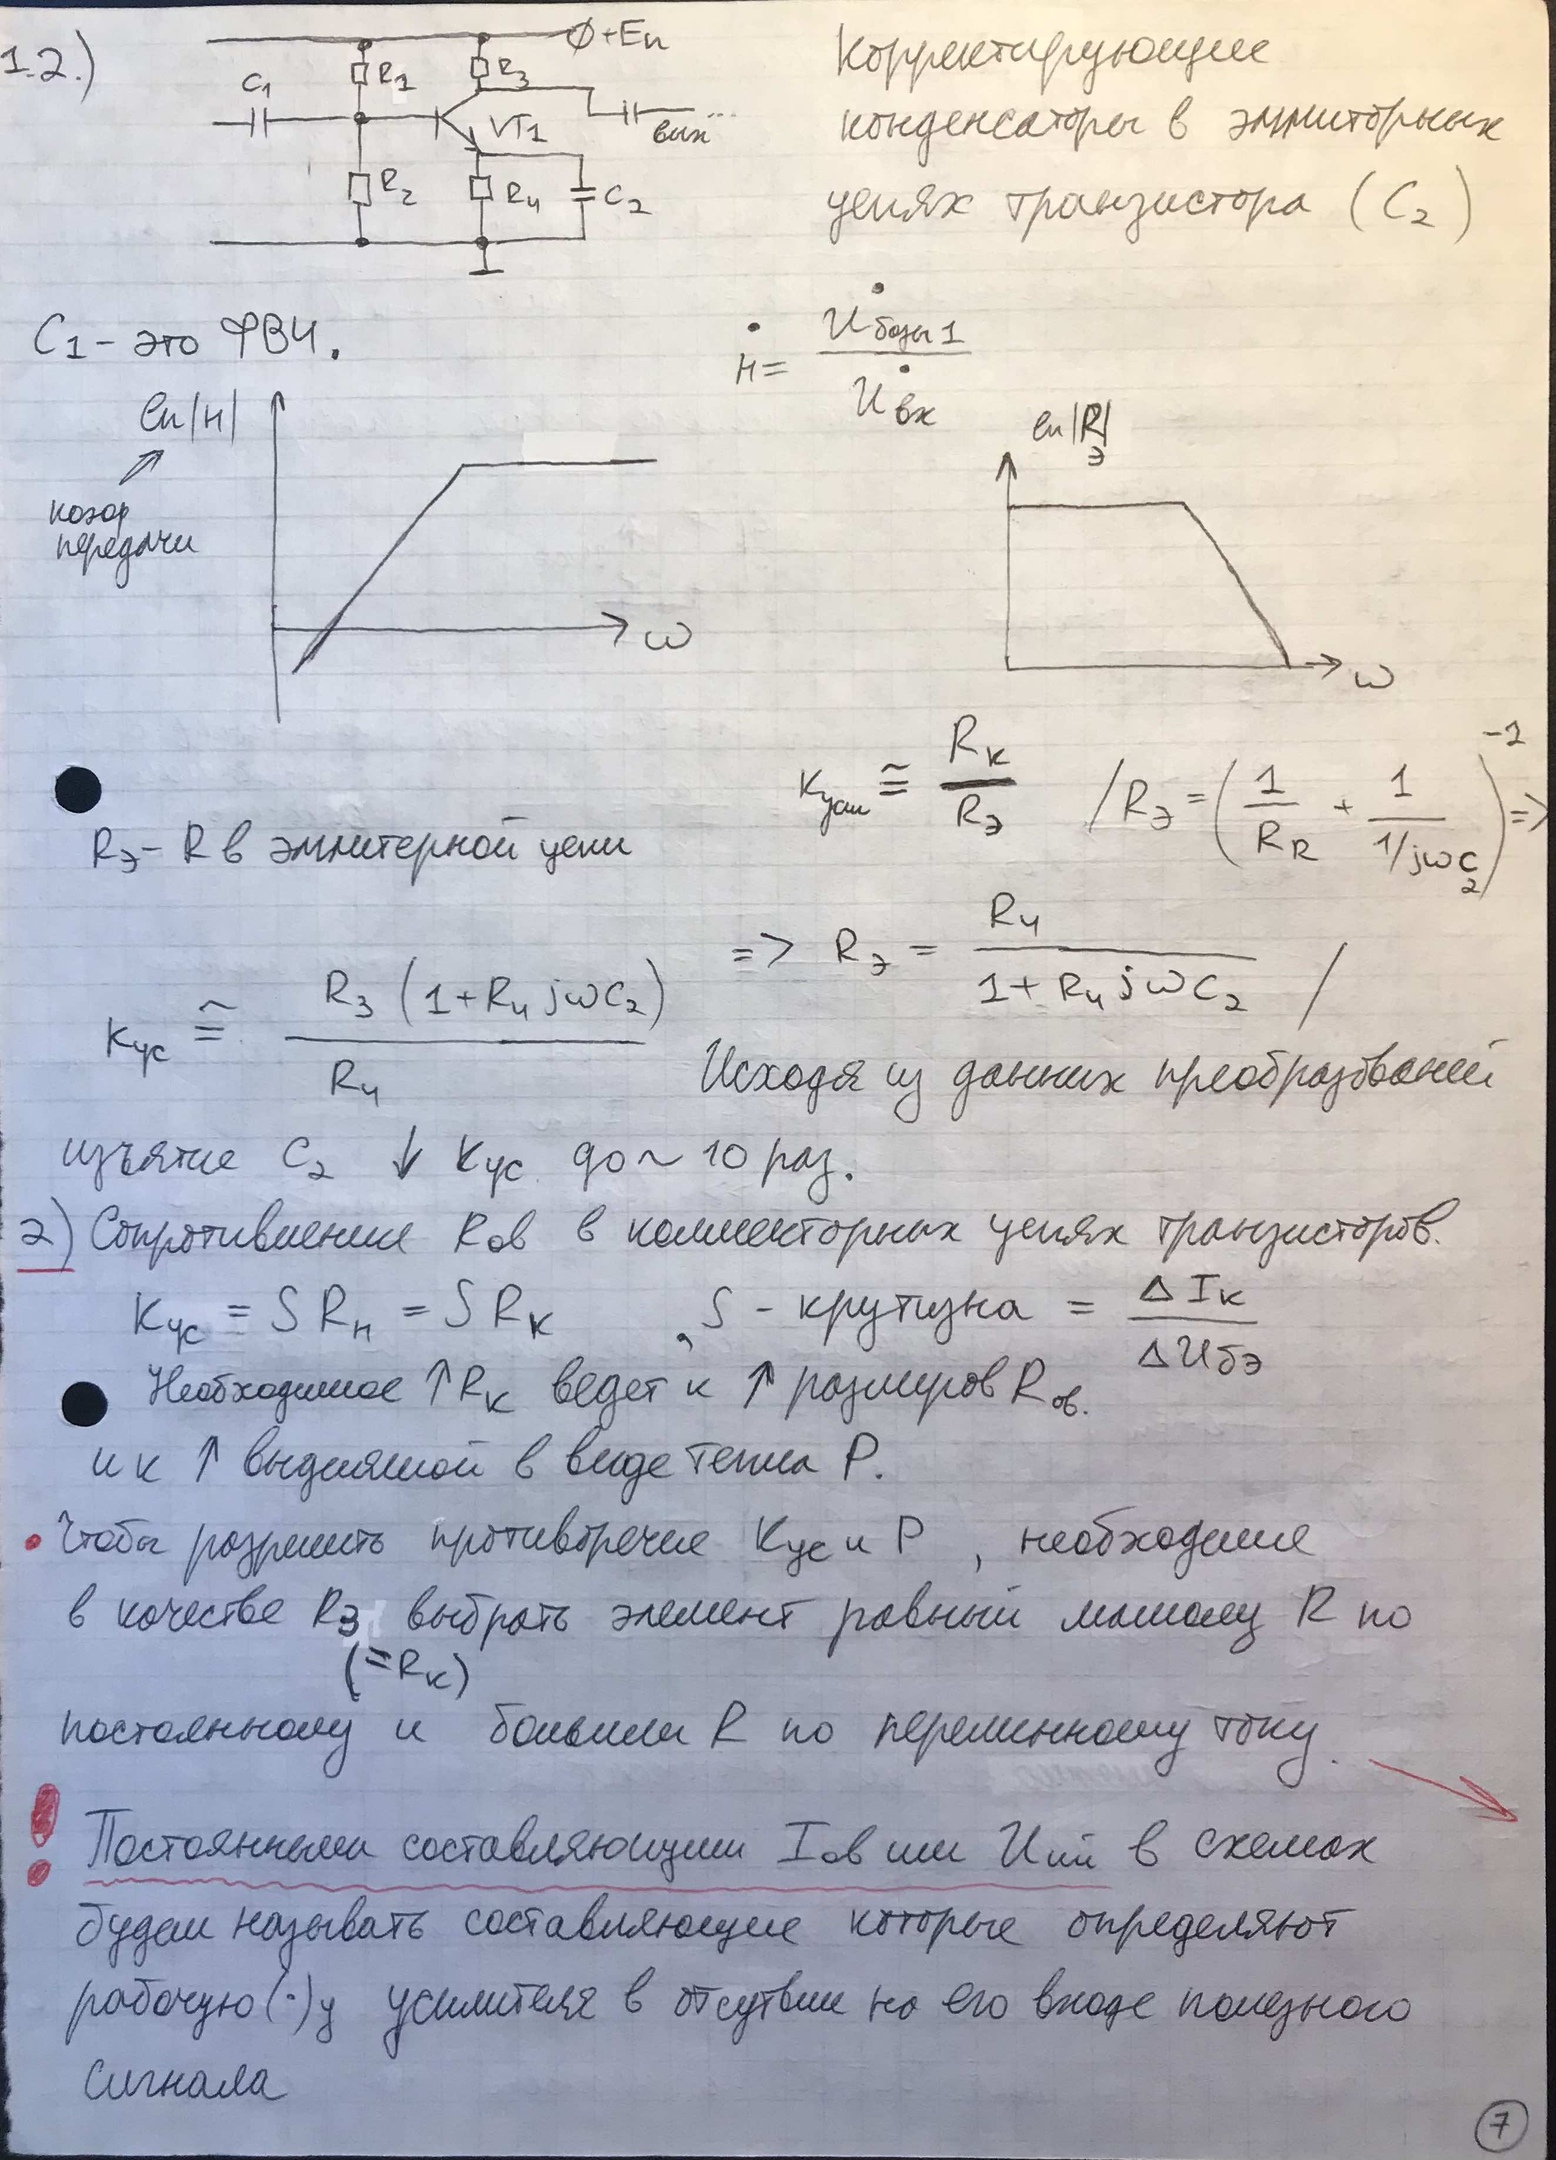 1.2.)
+Eп
R1
R3
C1
VT1
вых...
R2
R4
C2
Корректирующие
конденсаторы в эммиторных
цепях транзистора (C2)
C1 – это ФВЧ.
H = Uбазы1 / Uвх
ln|H|
коэф
передачи
ω
ln|Rэ|
ω
Kусил ≅ Rк / Rэ / Rэ = (1/RR + 1/(1/jωC2))^-1 =>
Rэ – R в эммитерной цепи
=> Rэ = R4 / (1 + R4 jωC2) /
Kус ≅ R3 (1 + R4 jωC2) / R4
Исходя из данных преобразований
изъятие C2 ↓ Kус до ~ 10 раз.
2) Сопротивление Rов в коллекторных цепях транзисторов.
Kус = S Rн = S Rк , S – крутизна = ΔIк / ΔUбэ
Необходимое ↑ Rк ведет к ↑ размеров Rов.
и к ↑ выдеямой в виде тепла P.
• Чтобы разрешить противоречие Kус и P , необходимо
в качестве R3 выбрать элемент равный малому R по
(=Rк)
постоянному и большим R по переменному току.
! Постоянными составляющими Iов или Uий в схемах
будем называть составляющие которые определяют
рабочую (·)у усилителя в отсутвие на его входе полезного
сигнала
7